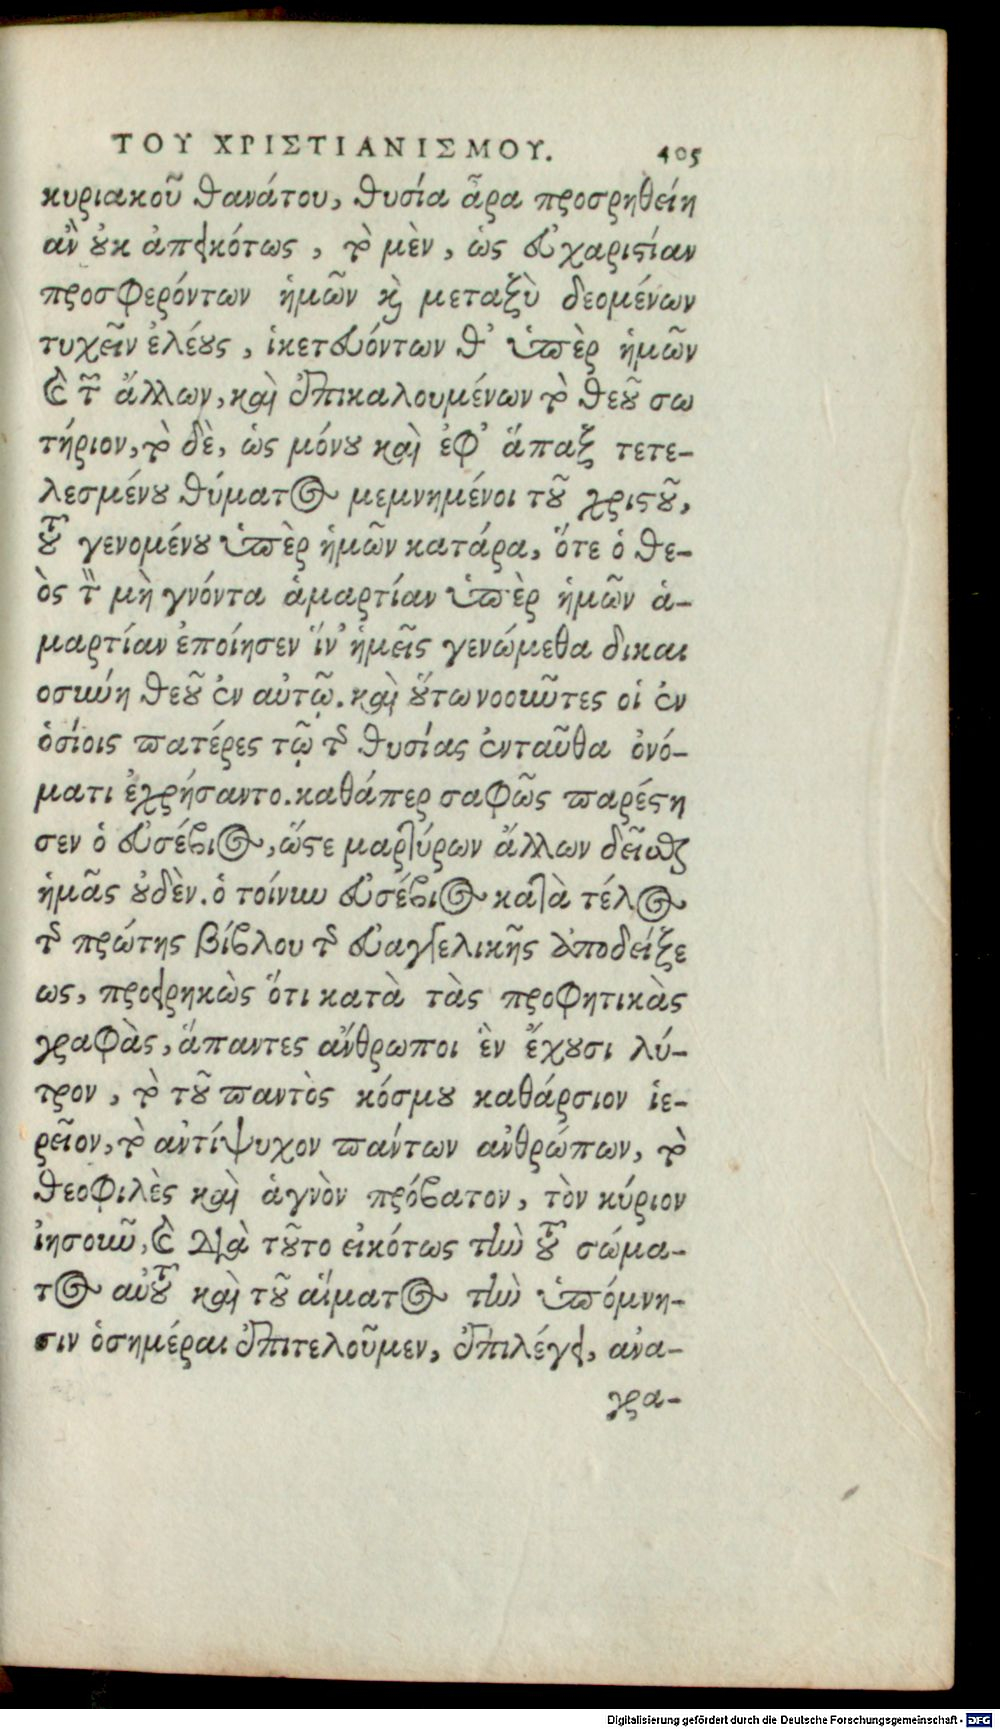 ΤΟΥ ΧΡΙΣΤΙΑΝΙΣΜΟΥ. 405
κυριακοῦ θανάτου, θυσία ἆρα προσρηθείη
ἂν ȣκ ἀπεικότως, τὸ μὲν, ὡς εὐχαριϛίαν
προσφερόντων ἡμῶν καὶ μεταξὺ δεομένων
τυχεῖν ἐλέȣς, ἱκετευόντων θ᾽ ὑπὲρ ἡμῶν
καὶ τῶν ἄλλων, καὶ ἐπικαλουμένων τὸ θεȣ͂ σω
τήριον, τὸ δὲ, ὡς μόνȣ καὶ ἐφ᾽ ἅπαξ τετε-
λεσμένȣ θύματος μεμνημένοι τȣ͂ χριϛȣ͂,
τȣ͂ γενομένȣ ὑπὲρ ἡμῶν κατάρα, ὅτε ὁ θε-
ὸς τὸν μὴ γνόντα ἁμαρτίαν ὑπὲρ ἡμῶν ἁ-
μαρτίαν ἐποίησεν ἵν᾽ ἡμεῖς γενώμεθα δικαι
οσύνη θεȣ͂ ἐν αὐτῷ. καὶ ȣ̔́τω νοοῦντες οἱ ἐν
ὁσίοις πατέρες τῷ τῆς θυσίας ἐνταῦθα ὀνό-
ματι ἐχρήσαντο. καθάπερ σαφῶς παρέϛη
σεν ὁ εὐσέβιος, ὥϛε μαρτύρων ἄλλων δεῖσθαι
ἡμᾶς ȣ̓δὲν. ὁ τοίνυν εὐσέβιος κατὰ τέλος
τῆς πρώτης βίβλου τῆς εὐαγγελικῆς ἀποδείξε
ως, προειρηκὼς ὅτι κατὰ τὰς προφητικὰς
γραφὰς, ἅπαντες ἄνθρωποι ἓν ἔχȣσι λύ-
τρον, τὸ τȣ͂ παντὸς κόσμȣ καθάρσιον ἱε-
ρεῖον, τὸ ἀντίψυχον πάντων ἀνθρώπων, τὸ
θεοφιλὲς καὶ ἁγνὸν πρόβατον, τὸν κύριον
ἰησοῦν, καὶ διὰ τȣ͂το εἰκότως τὴν τȣ͂ σώμα-
τος αὐτȣ͂ καὶ τȣ͂ αἵματος τὴν ὑπόμνη-
σιν ὁσημέραι ἐπιτελοῦμεν, ἐπιλέγει, ἀνα-
γρα-
Digitalisierung gefördert durch die Deutsche Forschungsgemeinschaft - DFG